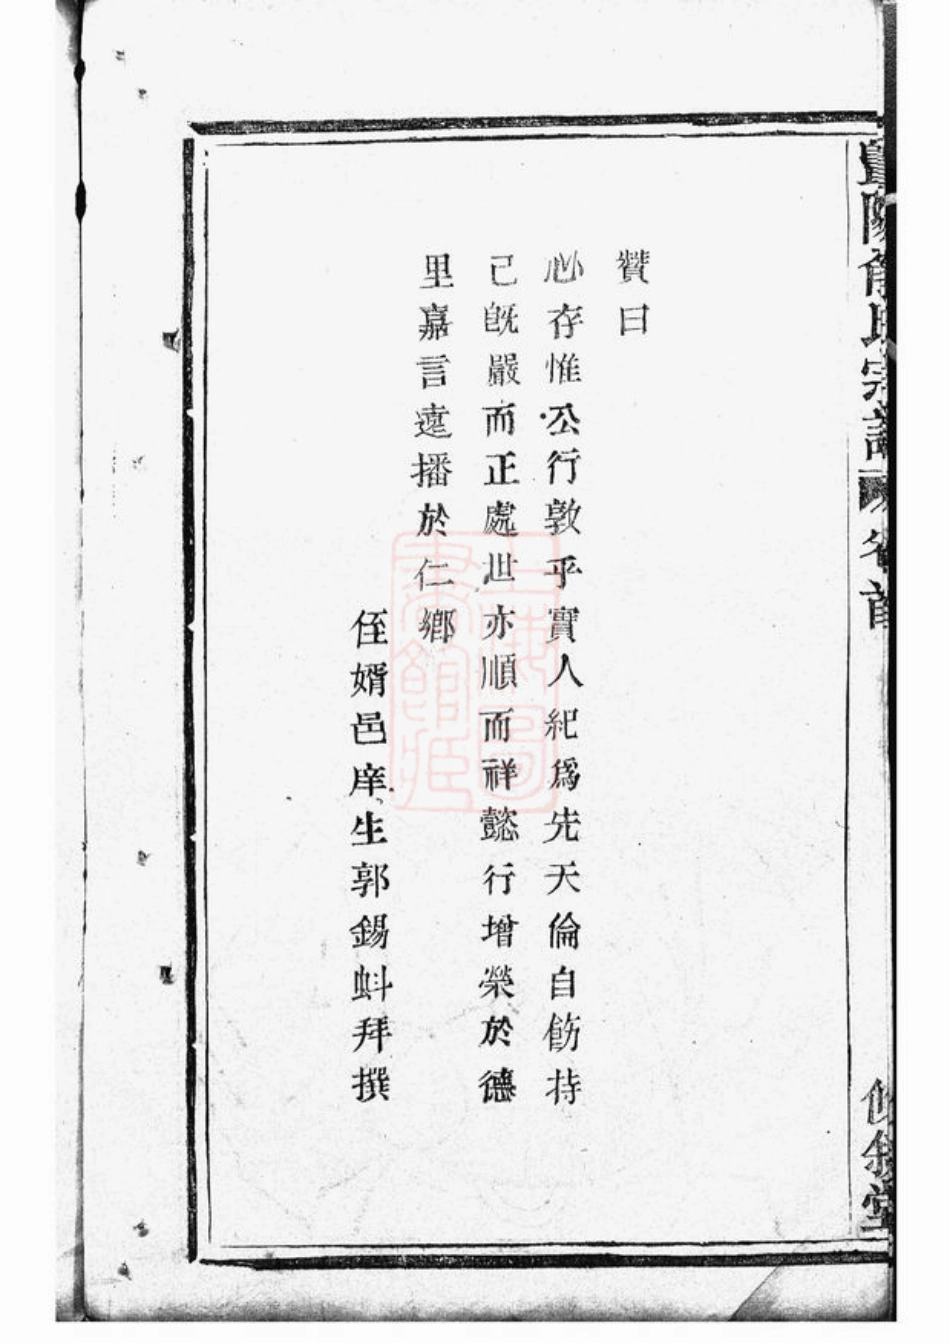 贊曰
心存惟公行敦乎實人紀爲先天倫自飭持
己旣嚴而正處世亦順而祥懿行增榮於德
里嘉言遠播於仁鄉
侄婿邑庠生郭錫蚪拜撰
暨陽俞氏宗譜
卷首
敘堂
上海圖書館藏